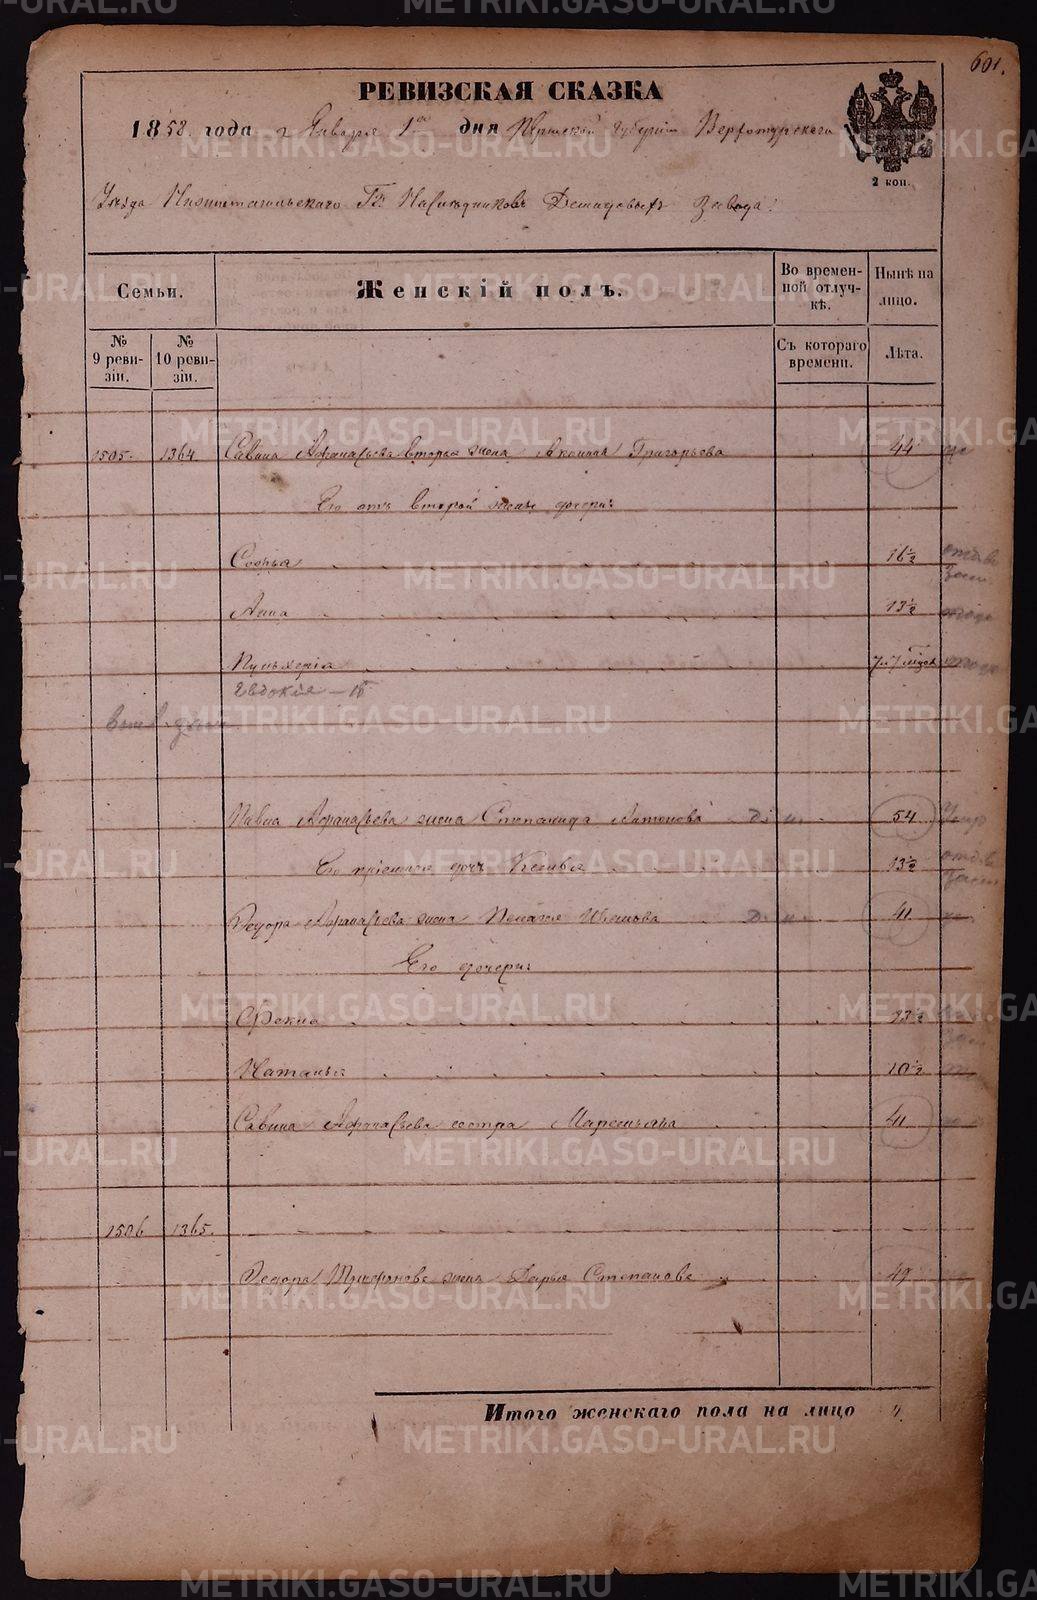 601.
РЕВИЗСКАЯ СКАЗКА
1858 года Января 1го дня Пермской губернии Верхотурскаго
2 коп.
Уѣзда Нижнетагильскаго Гг. Наслѣдниковъ Демидовыхъ завода.
Семьи. Женскій полъ. Во временной отлучкѣ. Нынѣ на лицо.
№ 9 ревизіи. № 10 ревизіи. Съ котораго времени. Лѣта.
1505. 1364 Савина Афанасьева вторая жена Григорьева 44
Его отъ второй жены дочери:
Софья 16½
Анна 13½
Пульхерія 7
Евдокія
Афанасьева жена Степанида Антонова 54
Его дочь 13½
Федора Афанасьева жена Пелагея 41
Его дочери:
Фекла 13½
Наталья 10½
Савина Афанасьева сестра 41
1506 1365.
Федора жена Дарья Степанова 49
Итого женскаго пола на лицо
METRIKI.GASO-URAL.RU